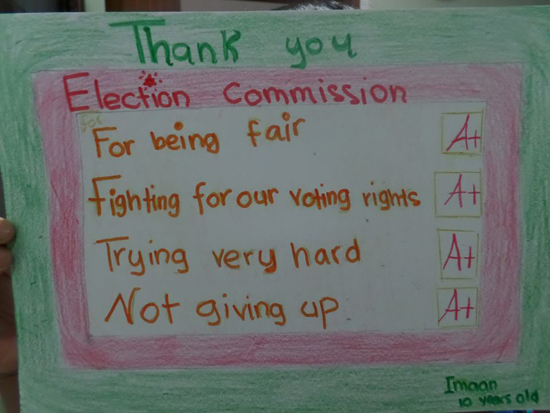 Thank you
Election Commission
For being fair A+
Fighting for our voting rights A+
Trying very hard A+
Not giving up A+
Imaan
10 years old